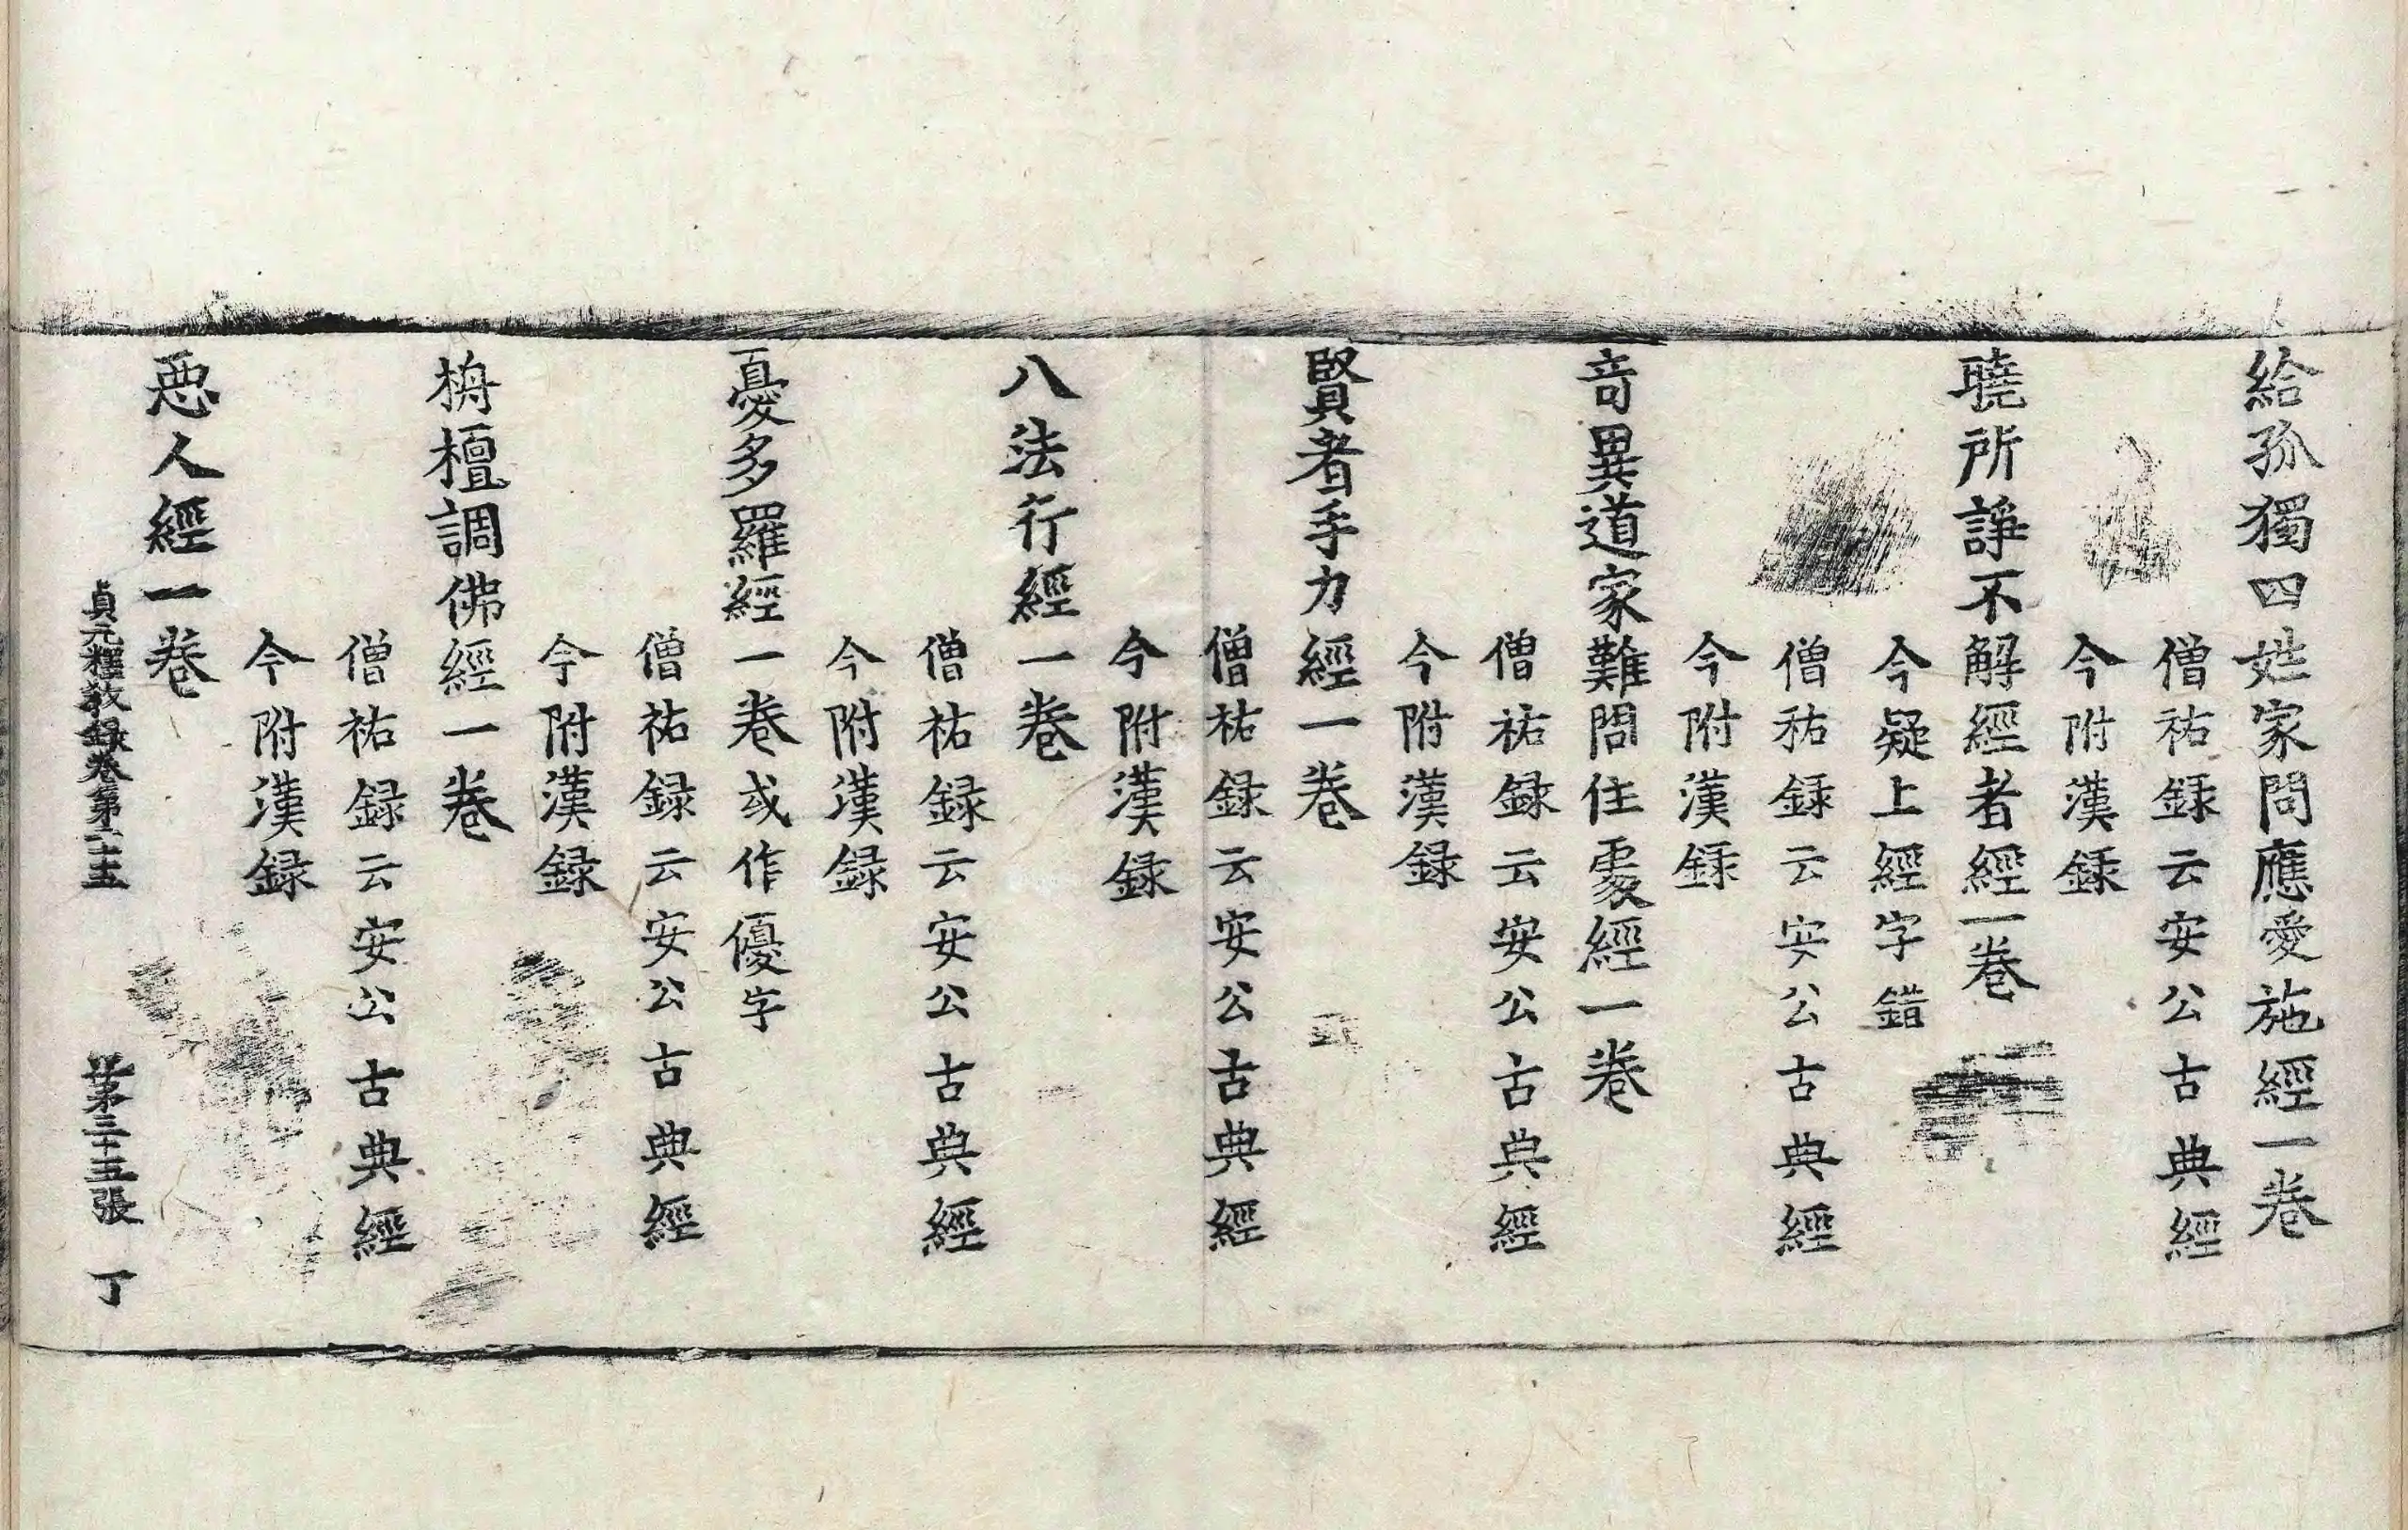 給孤獨四姓家問應愛施經一卷
僧祐録云安公古典經
今附漢録
曉所諍不解經者經一卷
今疑上經字錯
僧祐録云安公古典經
今附漢録
竒異道家難問住處經一卷
僧祐録云安公古典經
今附漢録
賢者手力經一卷
僧祐録云安公古典經
今附漢録
八法行經一卷
僧祐録云安公古典經
今附漢録
憂多羅經一卷或作優字
僧祐録云安公古典經
今附漢録
栴檀調佛經一卷
僧祐録云安公古典經
今附漢録
惡人經一卷
貞元釋教録卷第二十五 第三十五張 丁